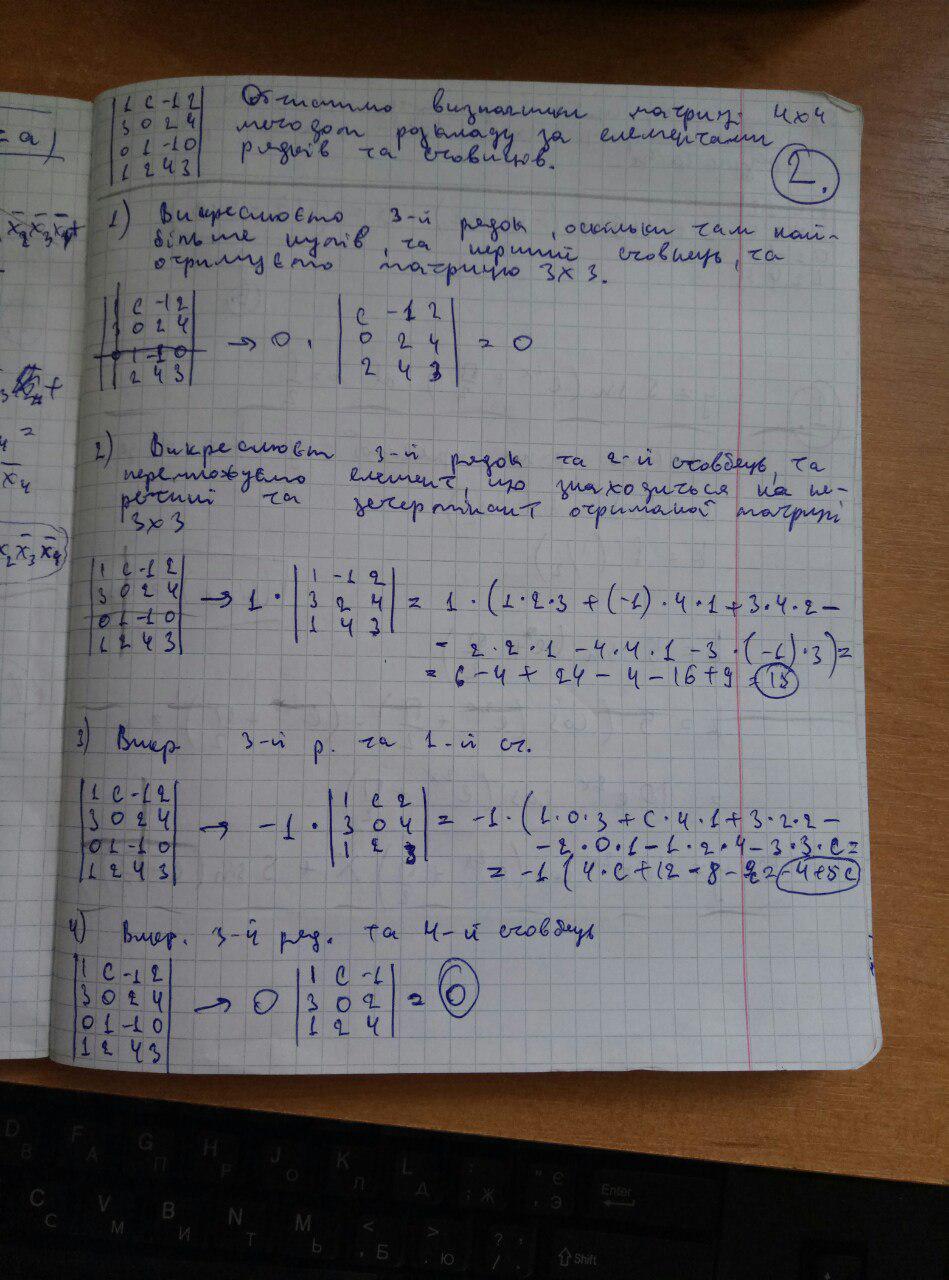 = a)
x̄₂x̄₃x̄₄+
x̄₄
x₂x̄₃x̄₄)
|1 c -1 2|
|3 0 2 4|
|0 1 -1 0|
|1 2 4 3|
визначники матриц 4x4
методом розкладу за елементами
рядків та стовпців.
2.
1) Викреслюєто 3-й рядок, оскільки там най-
більше нулів, та перший стовпець, та
отримуєто матрицю 3x3.
|1 c -1 2|
|3 0 2 4|
|0 1 -1 0|
|1 2 4 3|
→ 0 ·
|c -1 2|
|0 2 4|
|2 4 3|
= 0
2) Викреслюєт 3-й рядок та 2-й стовбець, та
перемножуємо елемент, що знаходиться на пе-
ретині та детермінант отриманої матриці
3x3
|1 c -1 2|
|3 0 2 4|
|0 1 -1 0|
|1 2 4 3|
→ 1 ·
|1 -1 2|
|3 2 4|
|1 4 3|
= 1 · (1·2·3 + (-1)·4·1 + 3·4·2 -
- 2·2·1 - 4·4·1 - 3·(-1)·3) =
= 6 - 4 + 24 - 4 - 16 + 9 = 15
3) Викр 3-й р. та 1-й ст.
|1 c -1 2|
|3 0 2 4|
|0 1 -1 0|
|1 2 4 3|
→ -1 ·
|1 c 2|
|3 0 4|
|1 2 3|
= -1 · (1·0·3 + c·4·1 + 3·2·2 -
- 2·0·1 - 1·2·4 - 3·3·c =
= -1 (4·c + 12 - 8 - 9c = -4+5c
4) Викр. 3-й ряд. та 4-й стовбець
|1 c -1 2|
|3 0 2 4|
|0 1 -1 0|
|1 2 4 3|
→ 0
|1 c -1|
|3 0 2|
|1 2 4|
= 0
D В
F А
G П
H Р
J О
K Л
L Д
: ; Ж
" ' Є Э
Enter
C С
V М
B И
N Т
M Ь
< , Б
> . Ю
? /
Shift